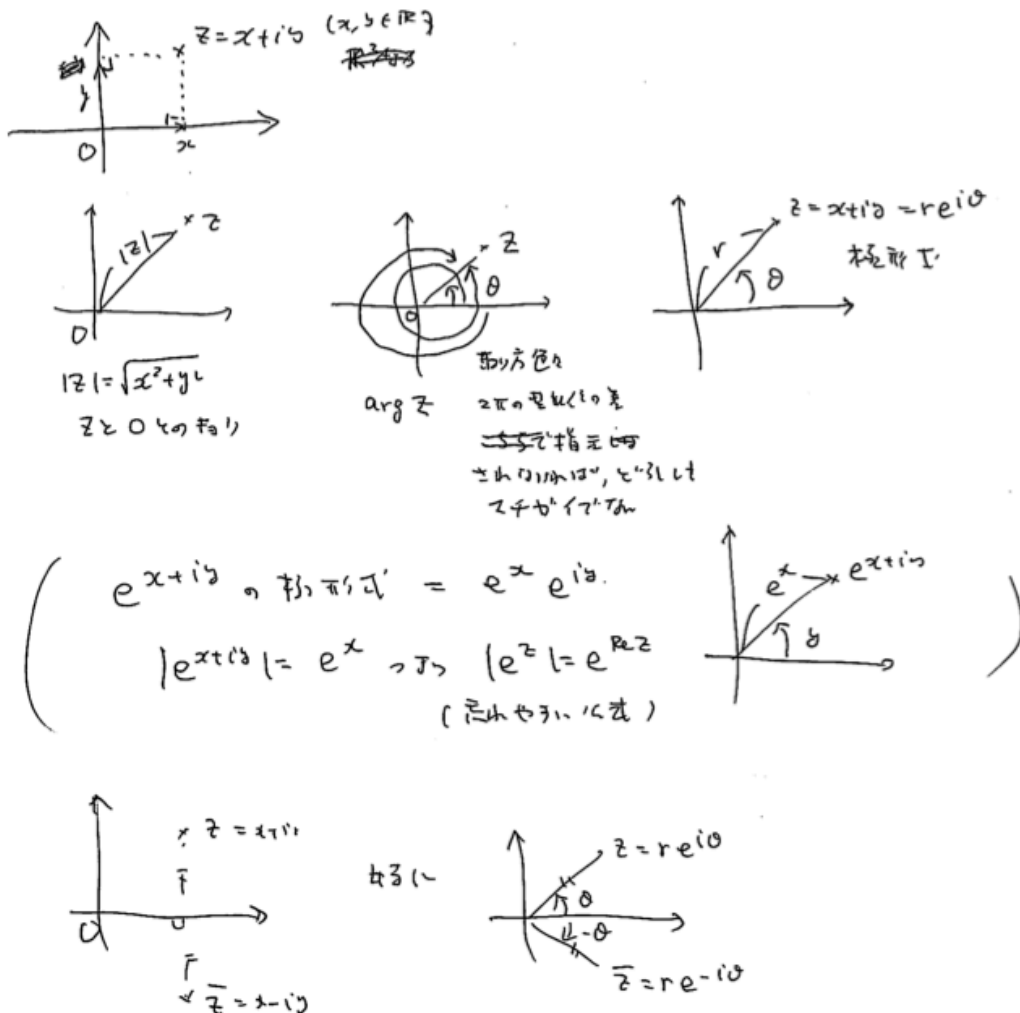 z=x+iy (x, y ∈ ℝ)
y
O
x
|z|
z
O
|z|=√x²+y²
zと0とのキョリ
z
θ
O
arg z
取り方色々
2πの整数倍の差
で指定
されなければ, どうしても
マチガイでない
z=x+iy=re^{iθ}
r
θ
極形式
e^{x+iy}の極形式 = e^x e^{iy}.
|e^{x+iy}|= e^x つまり |e^z|=e^{Re z}
(忘れやすい公式)
e^x
e^{x+iy}
y
z=x+iy
O
z̄=x-iy
z=re^{iθ}
θ
-θ
z̄=re^{-iθ}